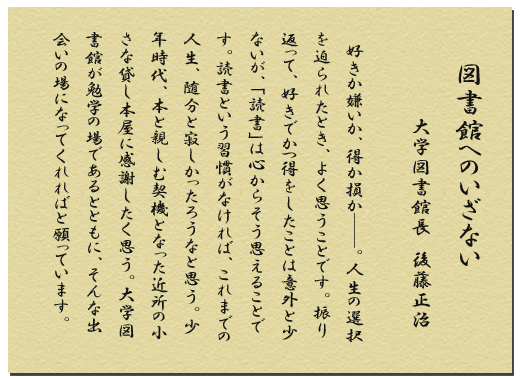 図書館へのいざない
大学図書館長 後藤正治
好きか嫌いか、得か損か――。人生の選択
を迫られたとき、よく思うことです。振り
返って、好きでかつ得をしたことは意外と少
ないが、「読書」は心からそう思えることで
す。読書という習慣がなければ、これまでの
人生、随分と寂しかったろうなと思う。少
年時代、本と親しむ契機となった近所の小
さな貸し本屋に感謝したく思う。大学図
書館が勉学の場であるとともに、そんな出
会いの場になってくれればと願っています。